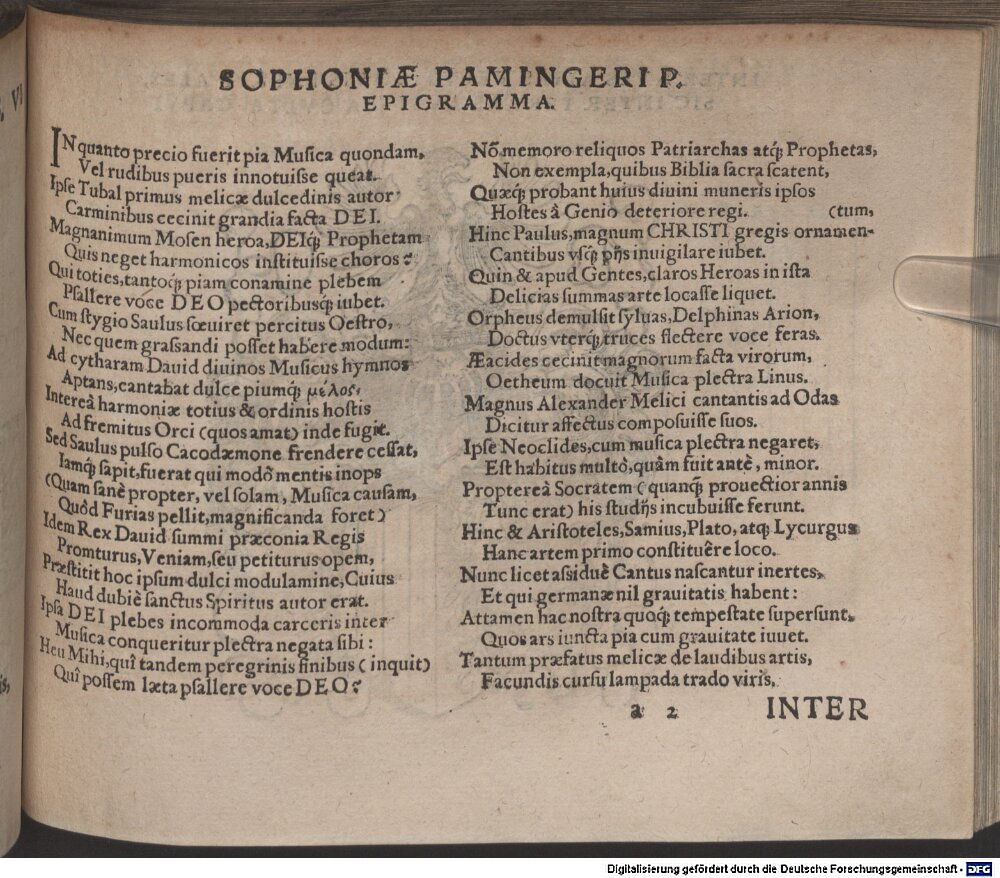 SOPHONIÆ PAMINGERI P.
EPIGRAMMA.
IN quanto precio fuerit pia Musica quondam,
Vel rudibus pueris innotuisse queat.
Ipse Tubal primus melicæ dulcedinis autor
Carminibus cecinit grandia facta DEI.
Magnanimum Mosen heroa, DEIq́; Prophetam
Quis neget harmonicos instituisse choros?
Qui toties, tantoq́; piam conamine plebem
Psallere voce DEO pectoribusq́; iubet.
Cum stygio Saulus sœuiret percitus Oestro,
Nec quem grassandi posset habere modum:
Ad cytharam Dauid diuinos Musicus hymnos
Aptans, cantabat dulce piumq́; μέλος.
Intereà harmoniæ totius & ordinis hostis
Ad fremitus Orci (quos amat) inde fugit.
Sed Saulus pulso Cacodæmone frendere cessat,
Iamq́; sapit, fuerat qui modò mentis inops
(Quam sanè propter, vel solam, Musica causam,
Quòd Furias pellit, magnificanda foret)
Idem Rex Dauid summi præconia Regis
Promturus, Veniam, seu petiturus opem,
Præstitit hoc ipsum dulci modulamine, Cuius
Haud dubiè sanctus Spiritus autor erat.
Ipsa DEI plebes incommoda carceris inter
Musica conqueritur plectra negata sibi:
Heu Mihi, quî tandem peregrinis finibus (inquit)
Quî possem læta psallere voce DEO?
Nõ memoro reliquos Patriarchas atq́; Prophetas,
Non exempla, quibus Biblia sacra scatent,
Quæq́; probant huius diuini muneris ipsos
Hostes à Genio deteriore regi. (tum,
Hinc Paulus, magnum CHRISTI gregis ornamen-
Cantibus vsq́; pijs inuigilare iubet.
Quin & apud Gentes, claros Heroas in ista
Delicias summas arte locasse liquet.
Orpheus demulsit syluas, Delphinas Arion,
Doctus vterq́; truces flectere voce feras.
Æacides cecinit magnorum facta virorum,
Oetheum docuit Musica plectra Linus.
Magnus Alexander Melici cantantis ad Odas
Dicitur affectus composuisse suos.
Ipse Neoclides, cum musica plectra negaret,
Est habitus multò, quàm fuit antè, minor.
Proptereà Socratem (quanq́; prouectior annis
Tunc erat) his studijs incubuisse ferunt.
Hinc & Aristoteles, Samius, Plato, atq́; Lycurgus
Hanc artem primo constituêre loco.
Nunc licet assiduè Cantus nascantur inertes,
Et qui germanæ nil grauitatis habent:
Attamen hac nostra quoq́; tempestate supersunt,
Quos ars iuncta pia cum grauitate iuuet.
Tantum præfatus melicæ de laudibus artis,
Facundis cursu lampada trado viris.
a 2 INTER
Digitalisierung gefördert durch die Deutsche Forschungsgemeinschaft - DFG